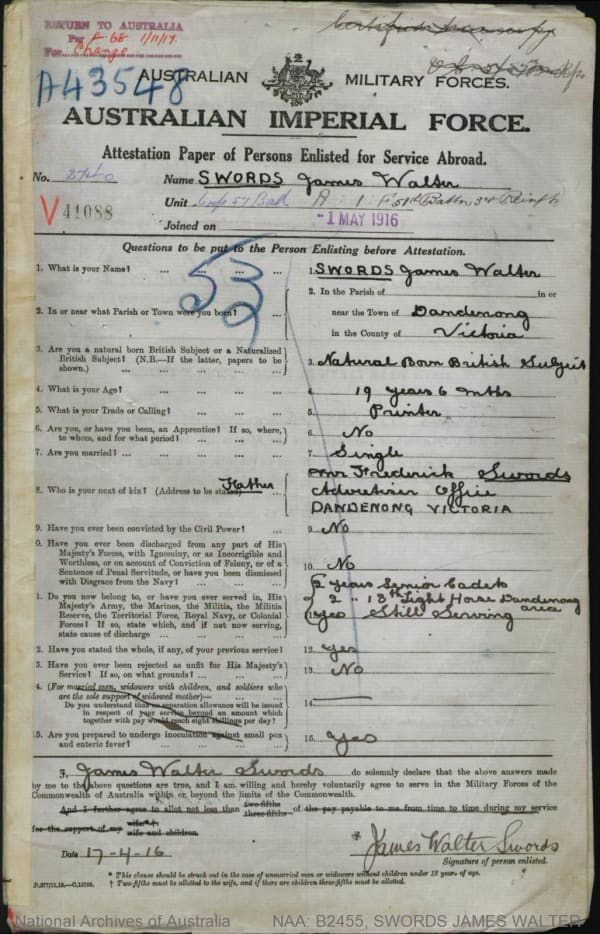 RETURN TO AUSTRALIA
Per A 68 1/11/17.
For Change
A43548
AUSTRALIAN MILITARY FORCES.
AUSTRALIAN IMPERIAL FORCE.
Attestation Paper of Persons Enlisted for Service Abroad.
No. Name SWORDS James Walter
V41088
Unit
Joined on -1 MAY 1916
Questions to be put to the Person Enlisting before Attestation.
1. What is your Name? ... ... ... ... 1. SWORDS James Walter
2. In or near what Parish or Town were you born? ... 2. In the Parish of in or
near the Town of Dandenong
in the County of Victoria
3. Are you a natural born British Subject or a Naturalized
British Subject? (N.B.—If the latter, papers to be
shown.) ... ... ... ... 3. Natural Born British Subject
4. What is your Age? ... ... ... 4. 19 years 6 mths
5. What is your Trade or Calling? ... ... ... 5. Printer
6. Are you, or have you been, an Apprentice? If so, where,
to whom, and for what period? ... ... ... 6. No
7. Are you married? ... ... ... ... 7. Single
8. Who is your next of kin? (Address to be stated) Father 8. Mr Frederick Swords
Advertiser Office
DANDENONG VICTORIA
9. Have you ever been convicted by the Civil Power? ... 9. No
0. Have you ever been discharged from any part of His
Majesty's Forces, with Ignominy, or as Incorrigible and
Worthless, or on account of Conviction of Felony, or of a
Sentence of Penal Servitude, or have you been dismissed
with Disgrace from the Navy? ... ... ... 10. No
1. Do you now belong to, or have you ever served in, His
Majesty's Army, the Marines, the Militia, the Militia
Reserve, the Territorial Force, Royal Navy, or Colonial
Forces? If so, state which, and if not now serving,
state cause of discharge ... ... ...
2 years Senior Cadets
2 " 13th Light Horse Dandenong area
11. Yes Still Serving
2. Have you stated the whole, if any, of your previous service? 12. Yes
3. Have you ever been rejected as unfit for His Majesty's
Service? If so, on what grounds? ... ... ... 13. No
4. (For married men, widowers with children, and soldiers who
are the sole support of widowed mother)—
Do you understand that no separation allowance will be issued
in respect of your service beyond an amount which
together with pay would reach eight shillings per day? 14.
5. Are you prepared to undergo inoculation against small pox
and enteric fever? ... ... ... ... 15. Yes
I, James Walter Swords do solemnly declare that the above answers made
by me to the above questions are true, and I am willing and hereby voluntarily agree to serve in the Military Forces of the
Commonwealth of Australia within or beyond the limits of the Commonwealth.
And I further agree to allot not less than two-fifths three-fifths of the pay payable to me from time to time during my service
for the support of my wife*† wife and children.
Date 17-4-16 * James Walter Swords
Signature of person enlisted.
* This clause should be struck out in the case of unmarried men or widowers without children under 18 years of age.
† Two-fifths must be allotted to the wife, and if there are children three-fifths must be allotted.
National Archives of Australia NAA: B2455, SWORDS JAMES WALTER